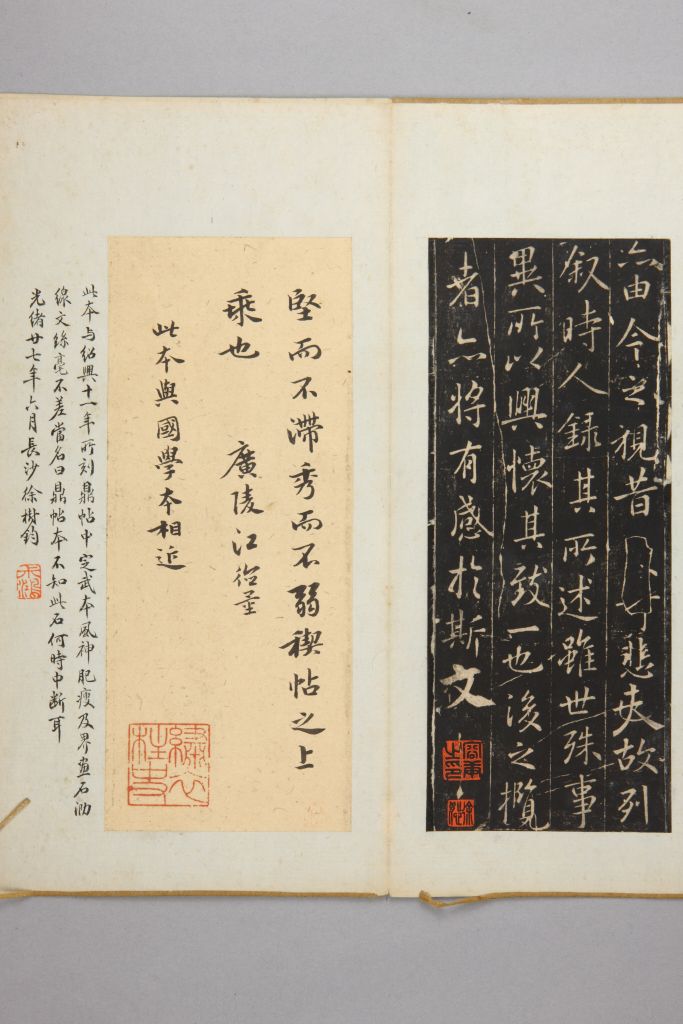 亦由今之視昔悲夫故列
叙時人録其所述雖世殊事
異所以興懷其致一也後之攬
者亦將有感扵斯文
堅而不滯秀而不弱禊帖之上
乘也　廣陵江德量
此本與國學本相近
此本与紹興十一年所刻鼎帖中定武本風神肥瘦及界畫石泐
線文絲毫不差當名曰鼎帖本不知此石何時中断耳
光緒廿七年六月長沙徐樹鈞